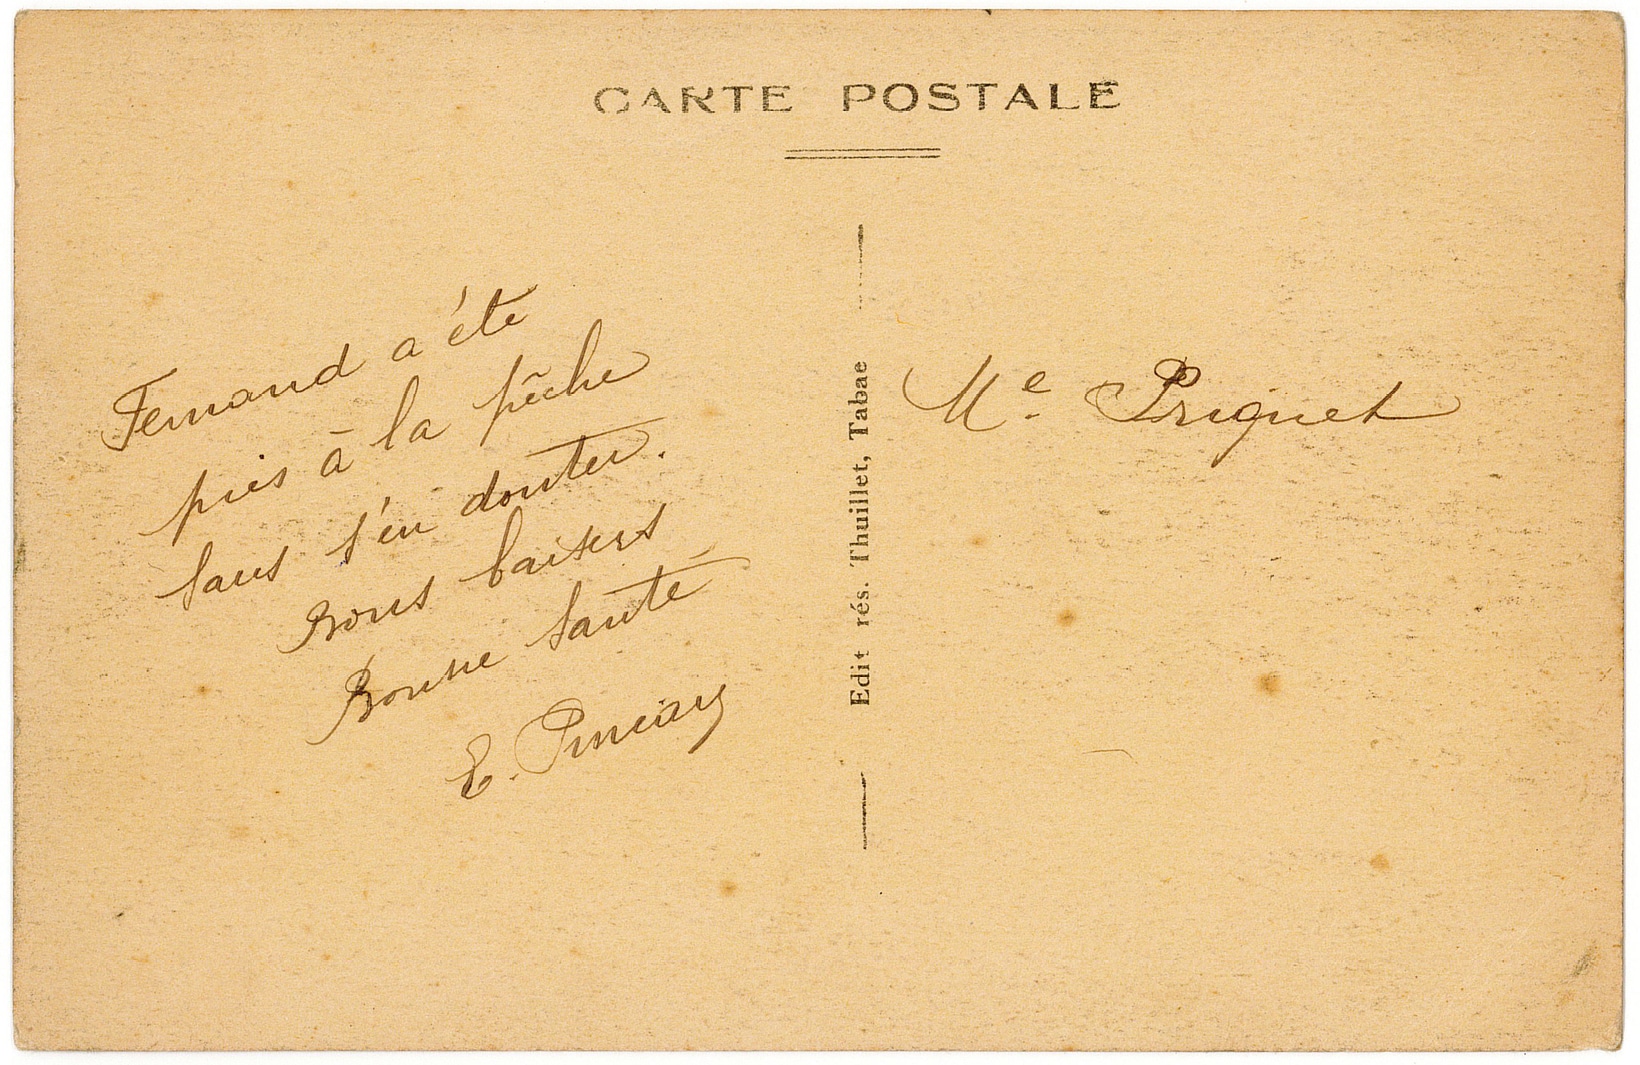 CARTE POSTALE
Fernand a été
pris à la pêche
sans s'en douter.
Bons baisers
Bonne santé
E.
Edit rés. Thuillet, Tabac
Me Priquet